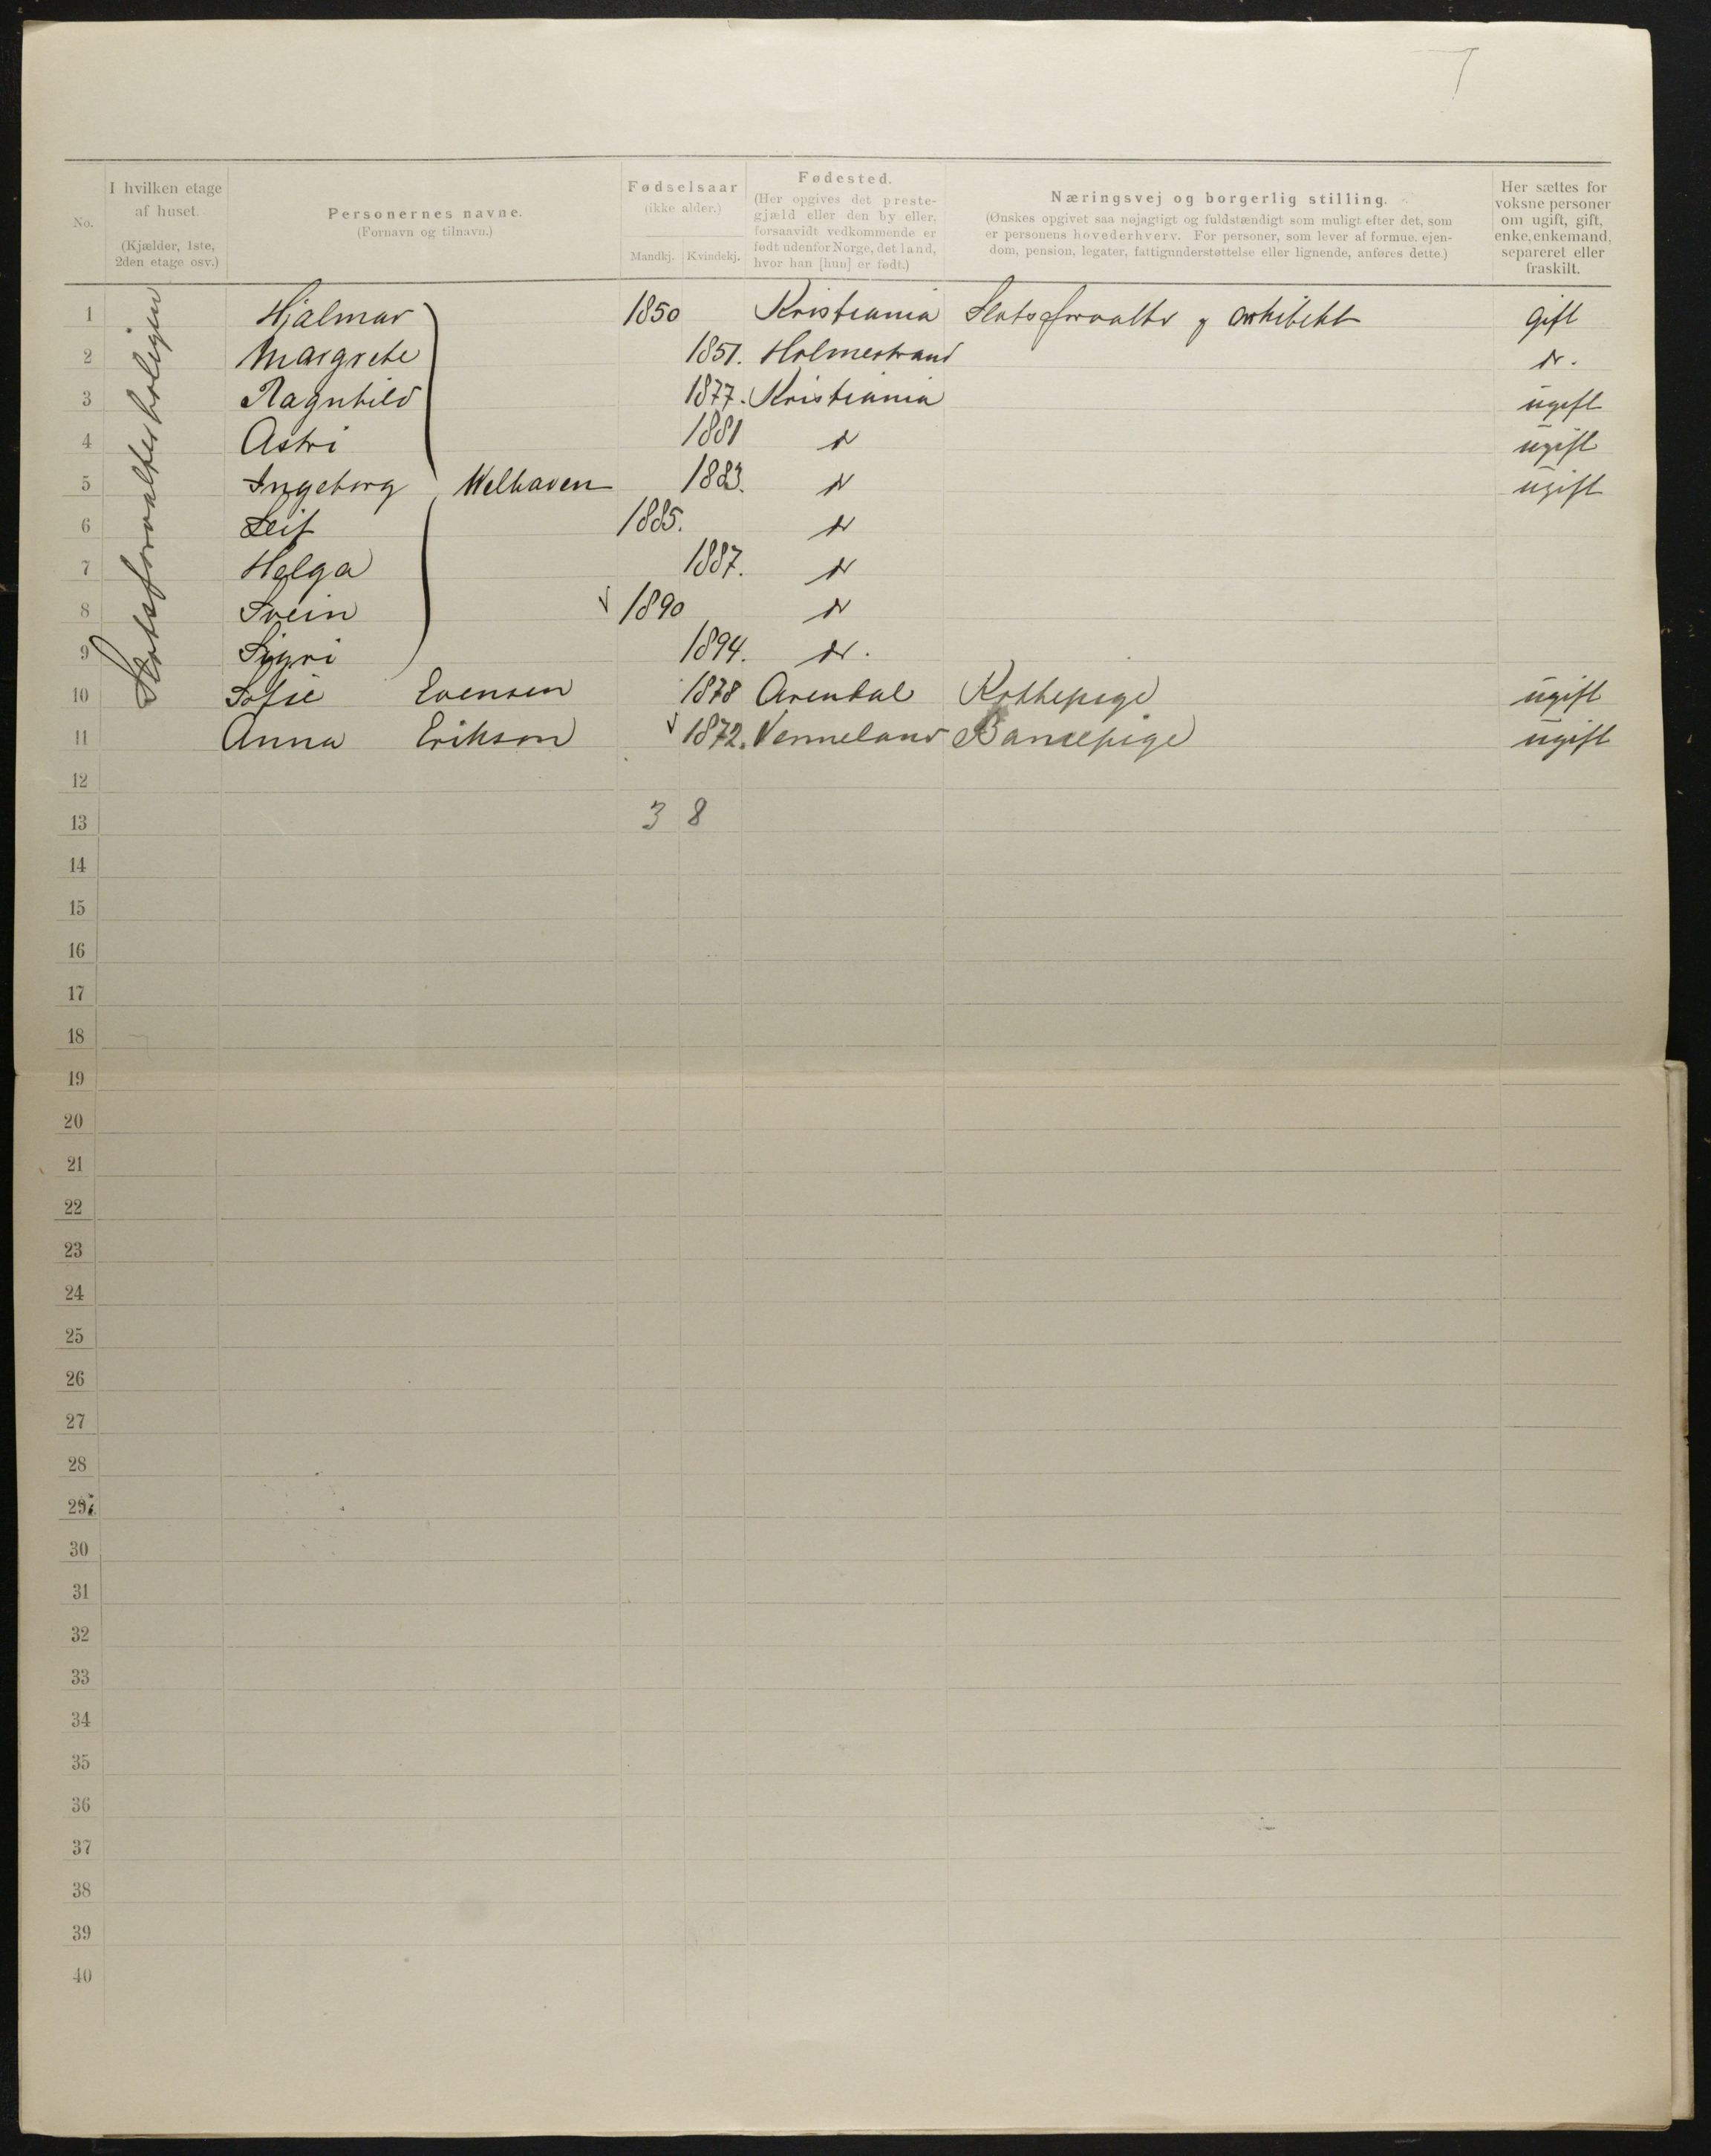 7
No.
I hvilken etage af huset.
(Kjælder, 1ste, 2den etage osv.)
Personernes navne.
(Fornavn og tilnavn.)
Fødselsaar
(ikke alder.)
Mandkj. Kvindekj.
Fødested.
(Her opgives det preste-
gjæld eller den by eller,
forsaavidt vedkommende er
født udenfor Norge, det land,
hvor han [hun] er født.)
Næringsvej og borgerlig stilling.
(Ønskes opgivet saa nøjagtigt og fuldstændigt som muligt efter det, som
er personens hovederhverv. For personer, som lever af formue, ejen-
dom, pension, legater, fattigunderstøttelse eller lignende, anføres dette.)
Her sættes for
voksne personer
om ugift, gift,
enke, enkemand,
separeret eller
fraskilt.
Slotsforvalterboligen
1 Hjalmar 1850 Kristiania Slotsforvalter og arkitekt gift
2 Margrete 1851. Holmestrand do.
3 Ragnhild 1877. Kristiania ugift
4 Astri 1881 do ugift
5 Ingeborg Welhaven 1883. do ugift
6 Leif 1885. do
7 Helga 1887. do
8 Svein 1890 do
9 Sigri 1894. do.
10 Sofie Evensen 1878 Arendal Kokkepige ugift
11 Anna Erikson 1872. Vermeland Barnepige ugift
12
13 3 8
14
15
16
17
18
19
20
21
22
23
24
25
26
27
28
29
30
31
32
33
34
35
36
37
38
39
40